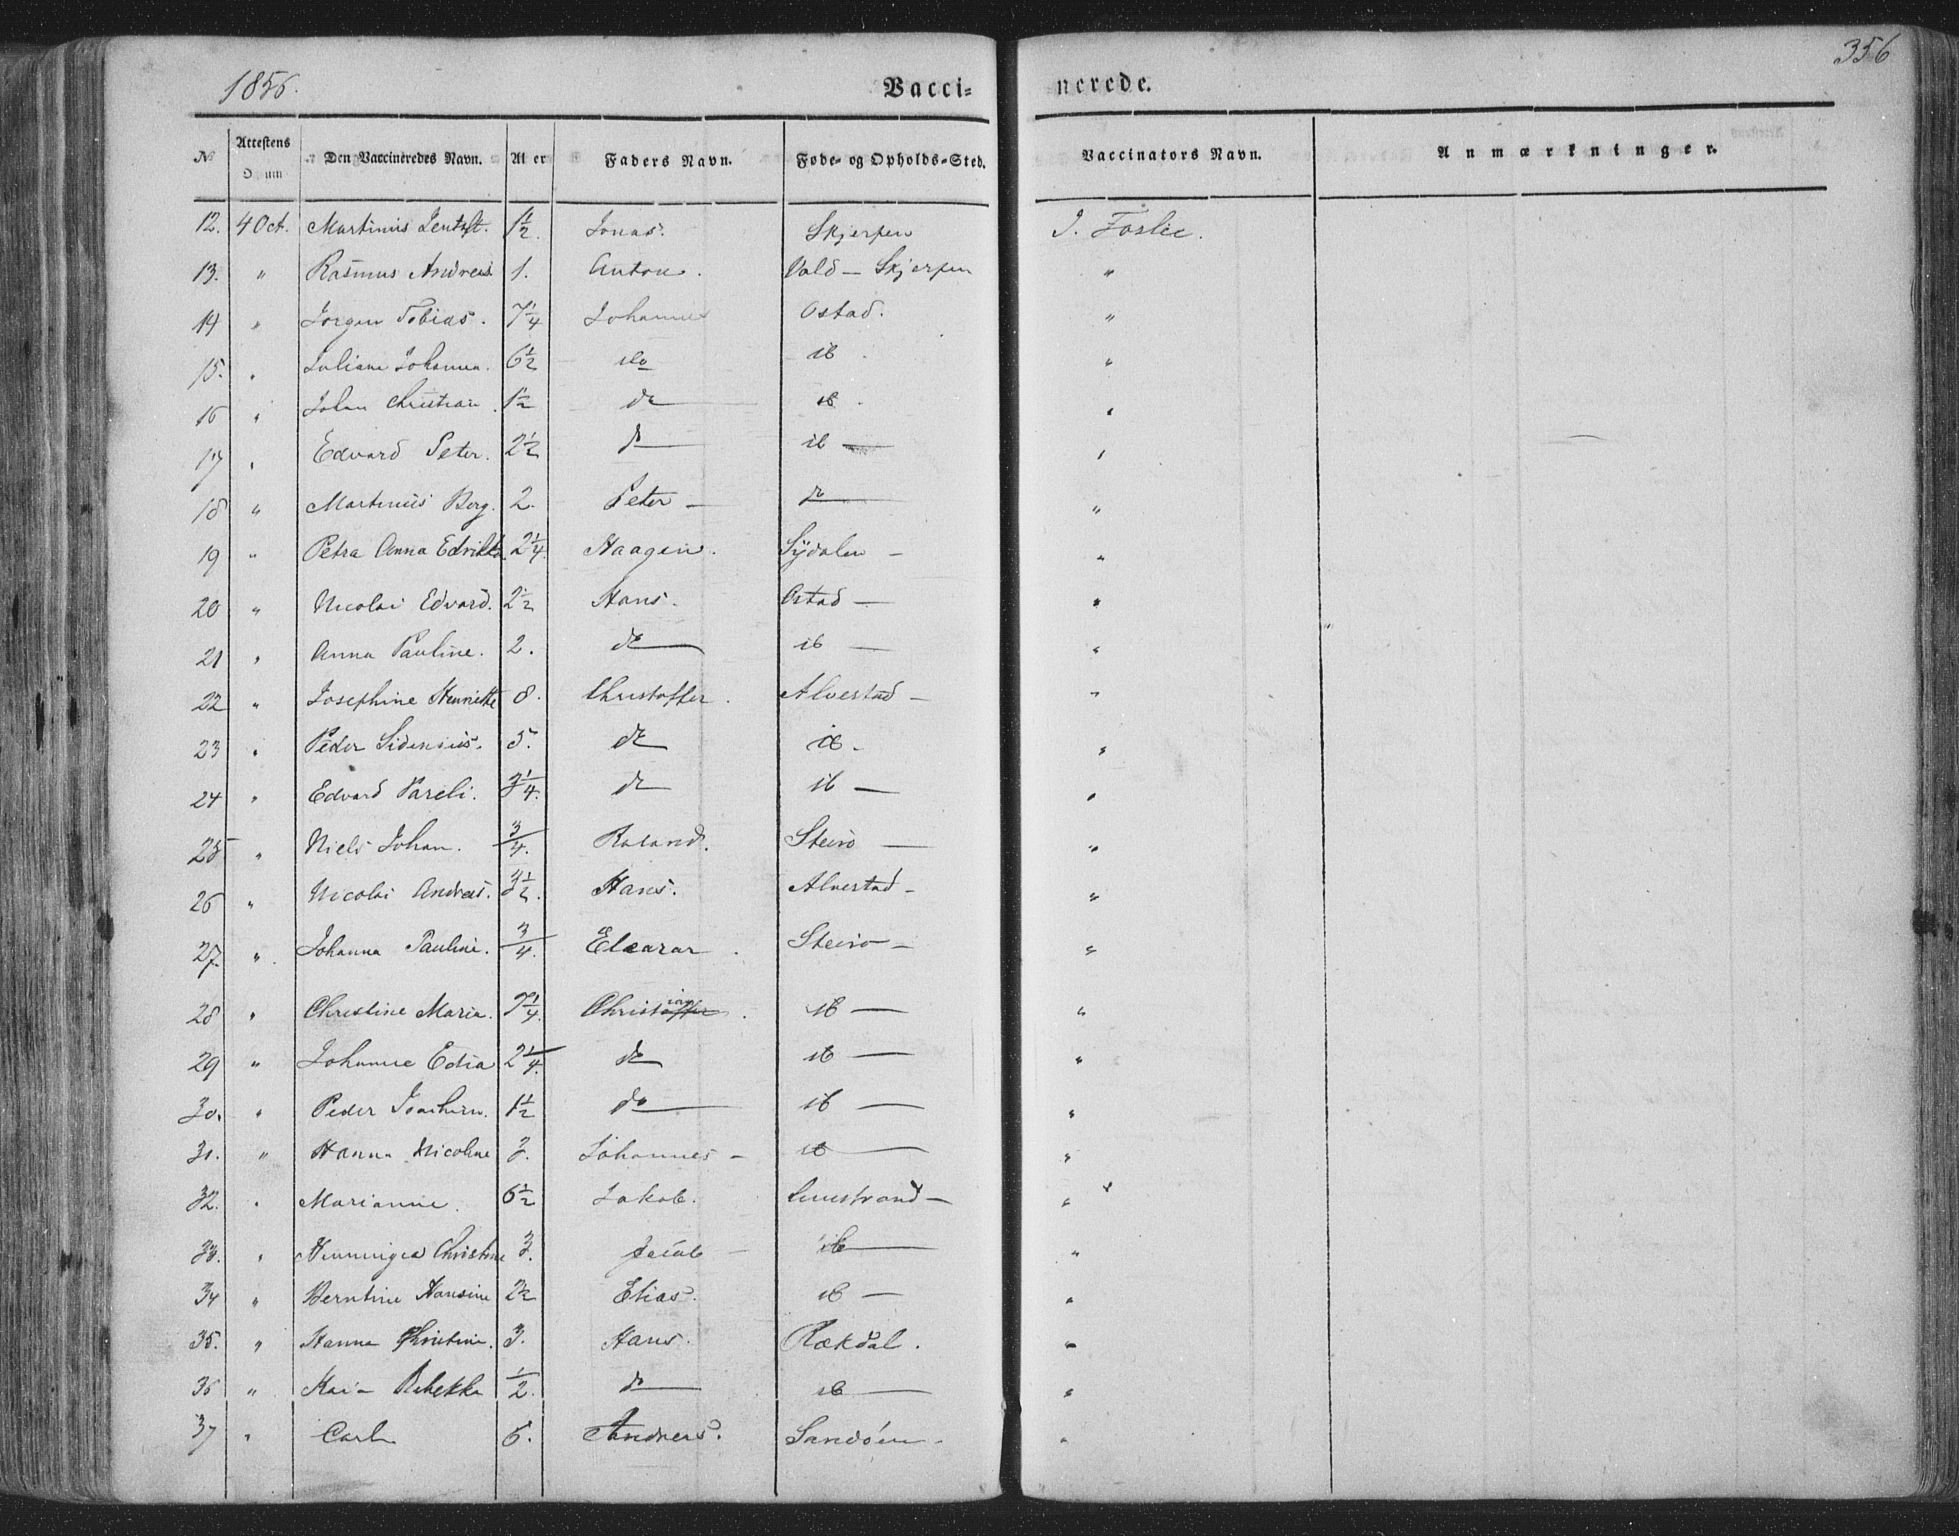 1856.
Vacci-
nerede.
356
No Attestens Datum Den Vaccineredes Navn. Alder Faders Navn. Føde- og Opholds-Sted. Vaccinators Navn. Anmærkninger.
12. 4 Oct. Martinus 1½. Jonas. Skjerpen J. Foslie.
13. " Rasmus Andreas 1. Anton. Vold - Skjerpen "
14 " Jørgen Tobias. 7¼ Johannes Ostad. "
15. " Juliane Johanna. 6½ do ib. "
16 " Johan Christian. 1½ do ib. "
17 " Edvard Peter. 2½ do ib - "
18 " Martinus Berg. 2. Peter - do "
19 " Petra Anna 2¼. Haagen. Sydalen - "
20 " Nicolai Edvard. 2½ Hans. Ostad - "
21 " Anna Pauline. 2. do ib - "
22 " Josephine Henriette 8. Christoffer. Alvestad - "
23 " Peder Sidenius. 5. do ib. "
24 " Edvard Pareli. 3¼. do ib - "
25 " Niels Johan. ¾. Roland. Steirø - "
26 " Nicolai Andreas. 3½. Hans. Alvestad - "
27. " Johanna Pauline. ¾ Eleasar. Steirø - "
28 " Christine Maria. 7¼. Christian. ib - "
29 " Johanne Edia 2¼. do ib - "
30. " Peder Joachim. 1½ do ib - "
31. " Hanna Nicoline 3. Johannes - ib - "
32. " Marianne. 6½ Jakob. - "
33. " Henningia Christine 3. Jacob - ib - "
34 " Berntine Hansine 2½ Elias. ib - "
35. " Hanna Christine. 3. Hans. Rækdal. "
36 " Rebekka ½. do ib - "
37 " Carl 6. Andreas. Sandøen - "